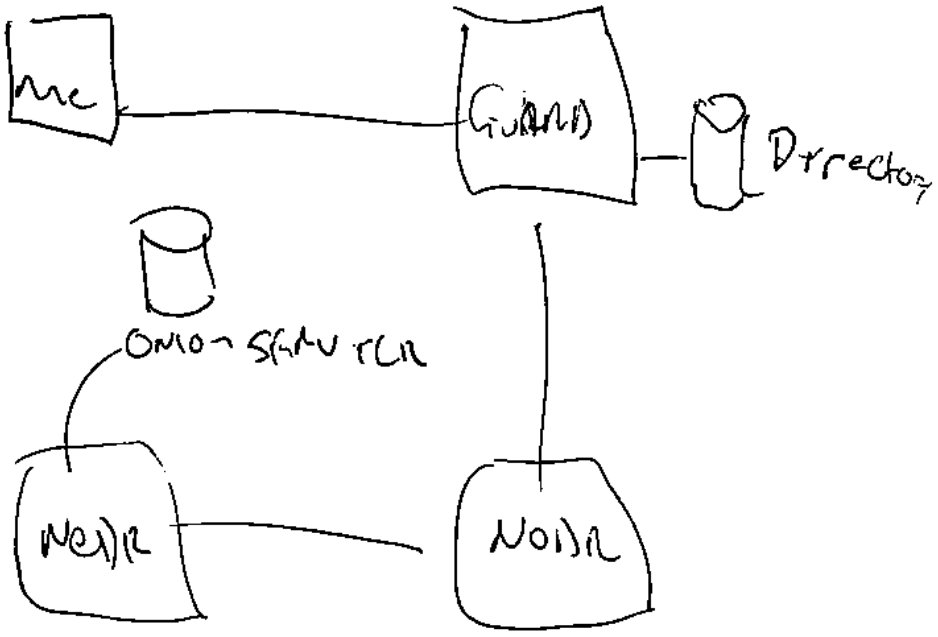 me
GUARD
Directory
Onion SERVICE
NODE
NODE